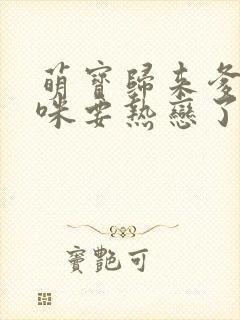 萌寶歸來爹
咪要熱戀了
竇艷可